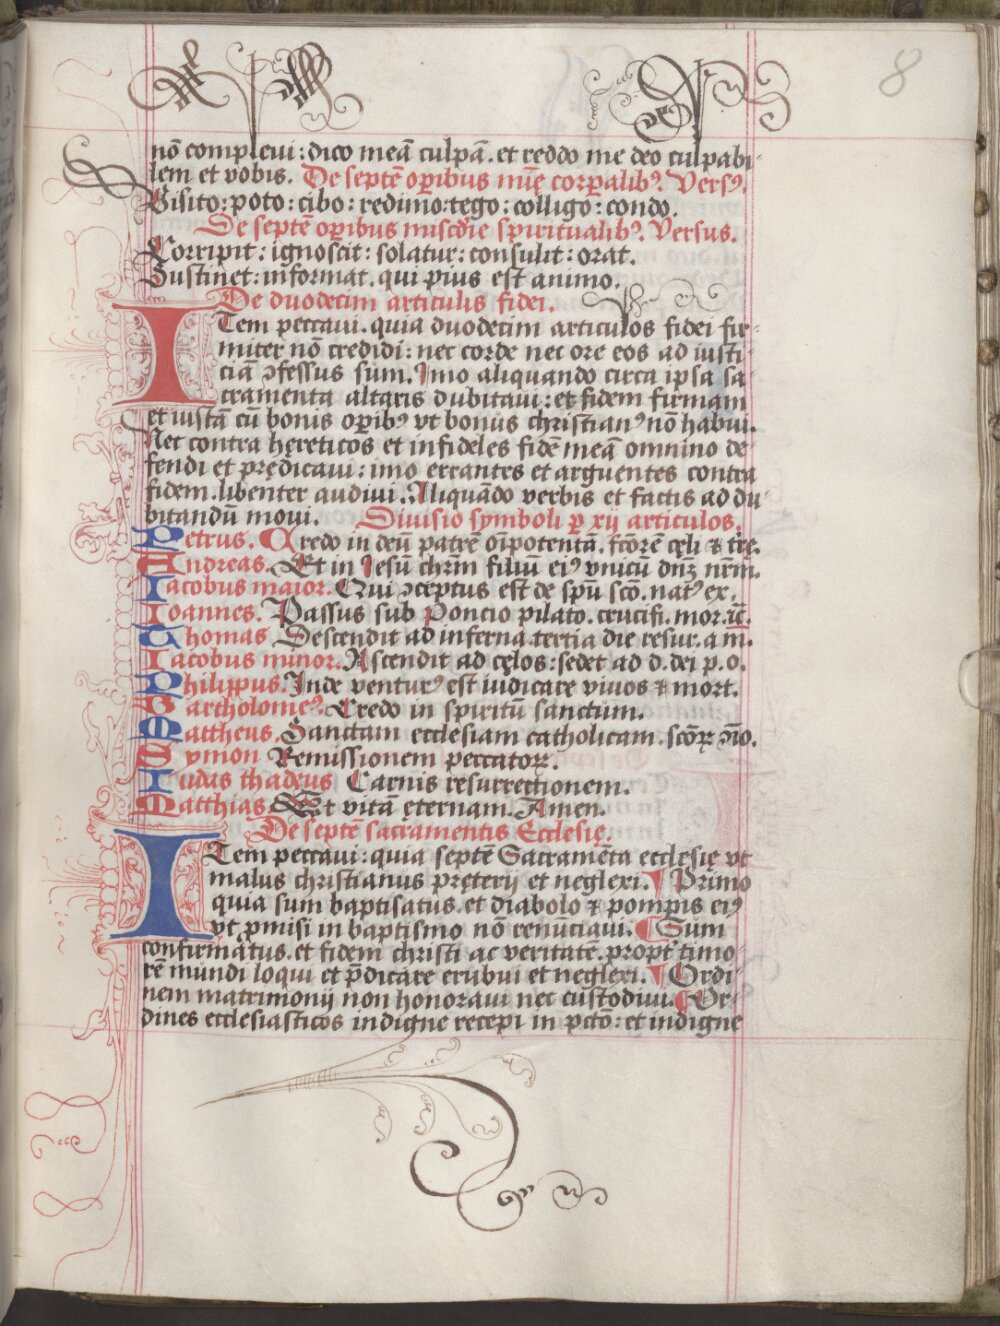 8
nō compleui : dico meā culpā . et reddo me deo culpabi-
lem et vobis. De septē oꝑibus mīe corꝑalibꝰ. Versꝰ.
Visito : poto : cibo : redimo : tego : colligo : condo.
De septē oꝑibus miscdie spiritualibꝰ. Versus.
Corripit : ignoscit : solatur : consulit : orat.
Sustinet : informat. qui pius est animo.
De duodecim articulis fidei.
ITem peccaui . quia duodecim articulos fidei fir-
miter nō credidi : nec corde nec ore eos ad iusti-
ciā ↄfessus sum. Imo aliquando circa ipsa sa
cramenta altaris dubitaui : et fidem firmam
et iustā cū bonis oꝑibꝰ vt bonus christianꝰ nō habui.
Nec contra hęreticos et infideles fidē meā omnino de
fendi et prędicaui : imo errantes et arguentes contra
fidem . libenter audiui. Aliquādo verbis et factis ad du-
bitandū moui. Diuisio symboli ꝑ xij articulos.
Petrus. Credo in deū patrē oīpotentā. fcōrē cęli & trę.
Andreas. Et in Jesū chrm̄ filiū eiꝰ vnicū dnꝫ nrm̄.
Iacobus maior. Qui ↄceptus est de spū scō. natꝰ ex.
Ioannes. Passus sub Poncio pilato. crucifi. mor. ⁊c̄.
Thomas. Descendit ad inferna. tertia die resur. a m.
Iacobus minor. Ascendit ad cęlos : sedet ad d. dei p. o.
Philippus. Inde venturꝰ est iudicare viuos & mort.
Bartholomeꝰ. Credo in spiritū sanctum.
Mattheus. Sanctam ecclesiam catholicam. scōꝝ ↄ̄io.
Symon Remissionem peccatoꝝ.
Iudas thadeus Carnis resurrectionem.
Matthias Et vitā ęternam. Amen.
De septē sacramentis Ecclesię.
ITem peccaui : quia septē Sacramēta ecclesię vt
malus christianus pręterij et neglexi. ¶ Primo
quia sum baptisatus . et diabolo & pompis eiꝰ
vt ꝓmisi in baptismo nō renūciaui. ¶ Sum
confirmatus . et fidem christi ac veritatē . propt̄ timo
rē mundi loqui et p̄dicare erubui et neglexi. ¶ Ordi
nem matrimonij non honoraui nec custodiui. ¶ Or-
dines ecclesiasticos indigne recepi in pctō : et indigne